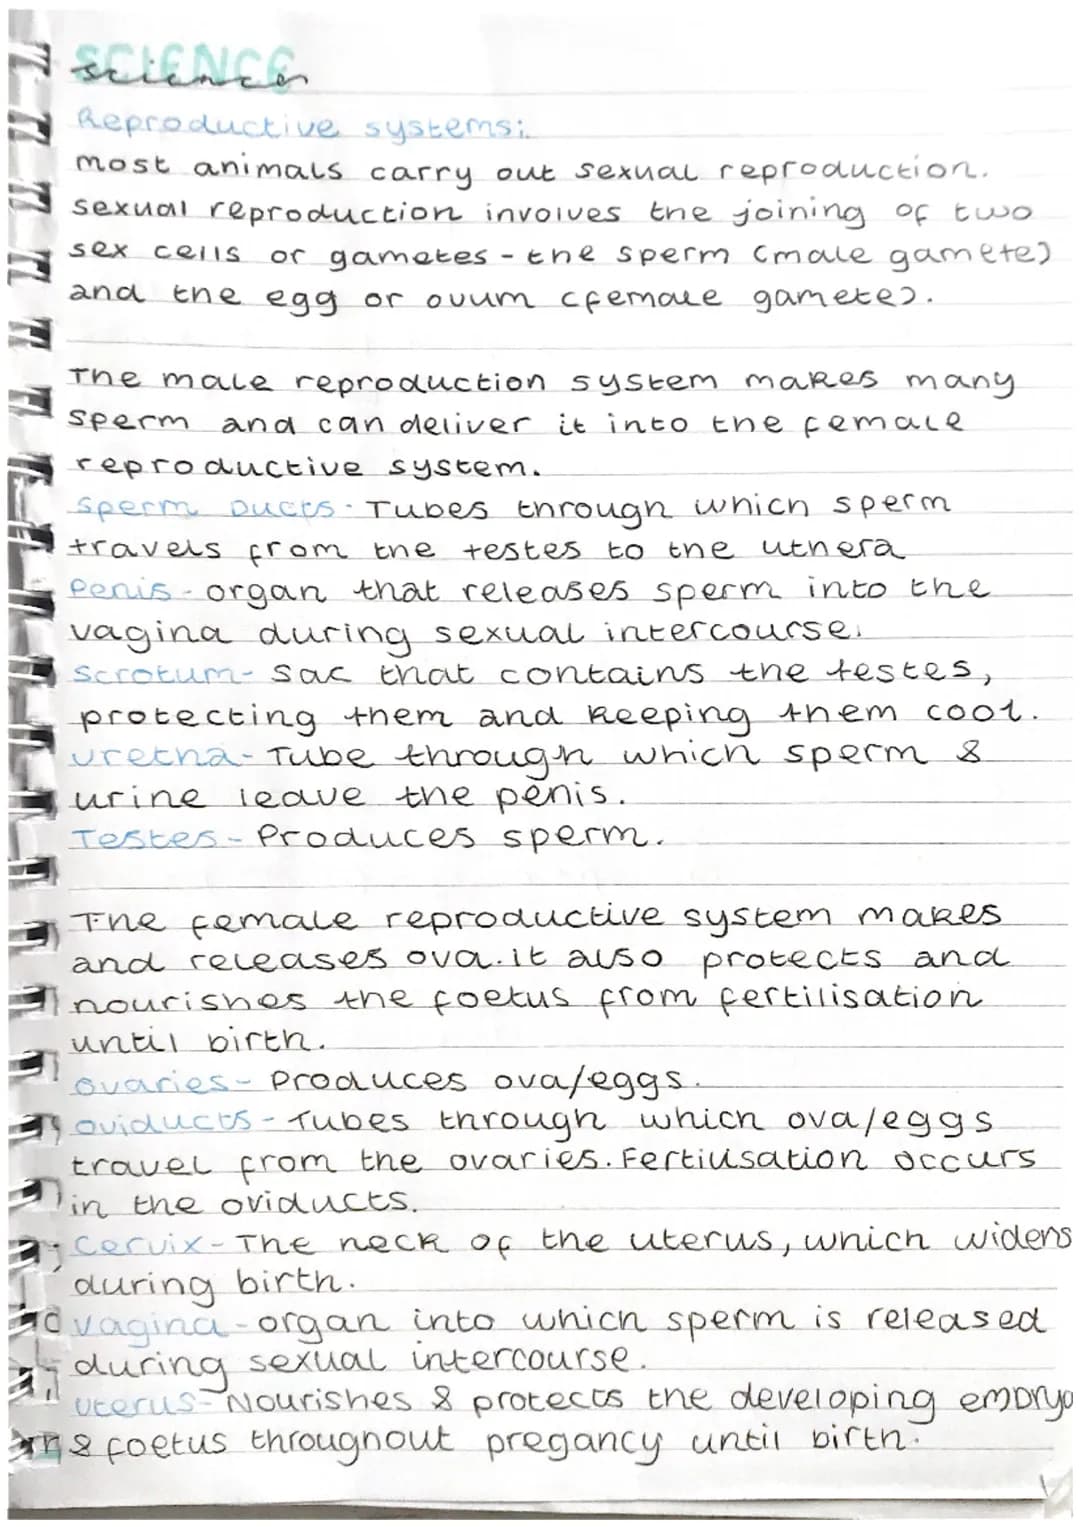 SCIENCE
science
Reproductive systems:
most animals carry out sexual reproduction.
sexual reproduction involves the joining of two
sex cells or gametes - the sperm (male gamete)
and the egg or ovum (female gamete).
The male reproduction system makes many
sperm and can deliver it into the female
reproductive system.
Sperm Ducts - Tubes through which sperm
travels from the testes to the uthera
Penis - organ that releases sperm into the
vagina during sexual intercourse.
Scrotum - Sac that contains the testes,
protecting them and keeping them cool.
uretha - Tube through which sperm &
urine leave the penis.
Testes - Produces sperm.
The female reproductive system makes
and releases ova. it also protects and
nourishes the foetus from fertilisation
until birth.
ovaries - Produces ova/eggs.
oviducts - Tubes through which ova/eggs
travel from the ovaries. Fertilisation occurs
in the oviducts.
Cervix - The neck of the uterus, which widens
during birth.
vagina - organ into which sperm is released
during sexual intercourse.
uterus - Nourishes & protects the developing embryo
& foetus throughout pregancy until birth.